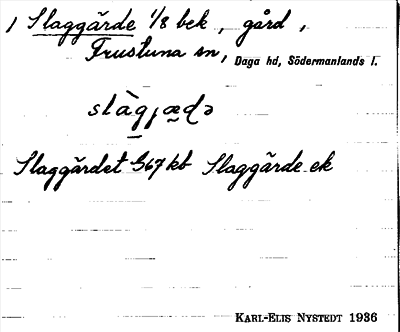 1 Slaggärde 1/8 bek, gård,
Frustuna sn, Daga hd, Södermanlands l.
slàgjæ̣ḍə
Slaggärdet 567 kb Slaggärde ek
KARL-ELIS NYSTEDT 1936